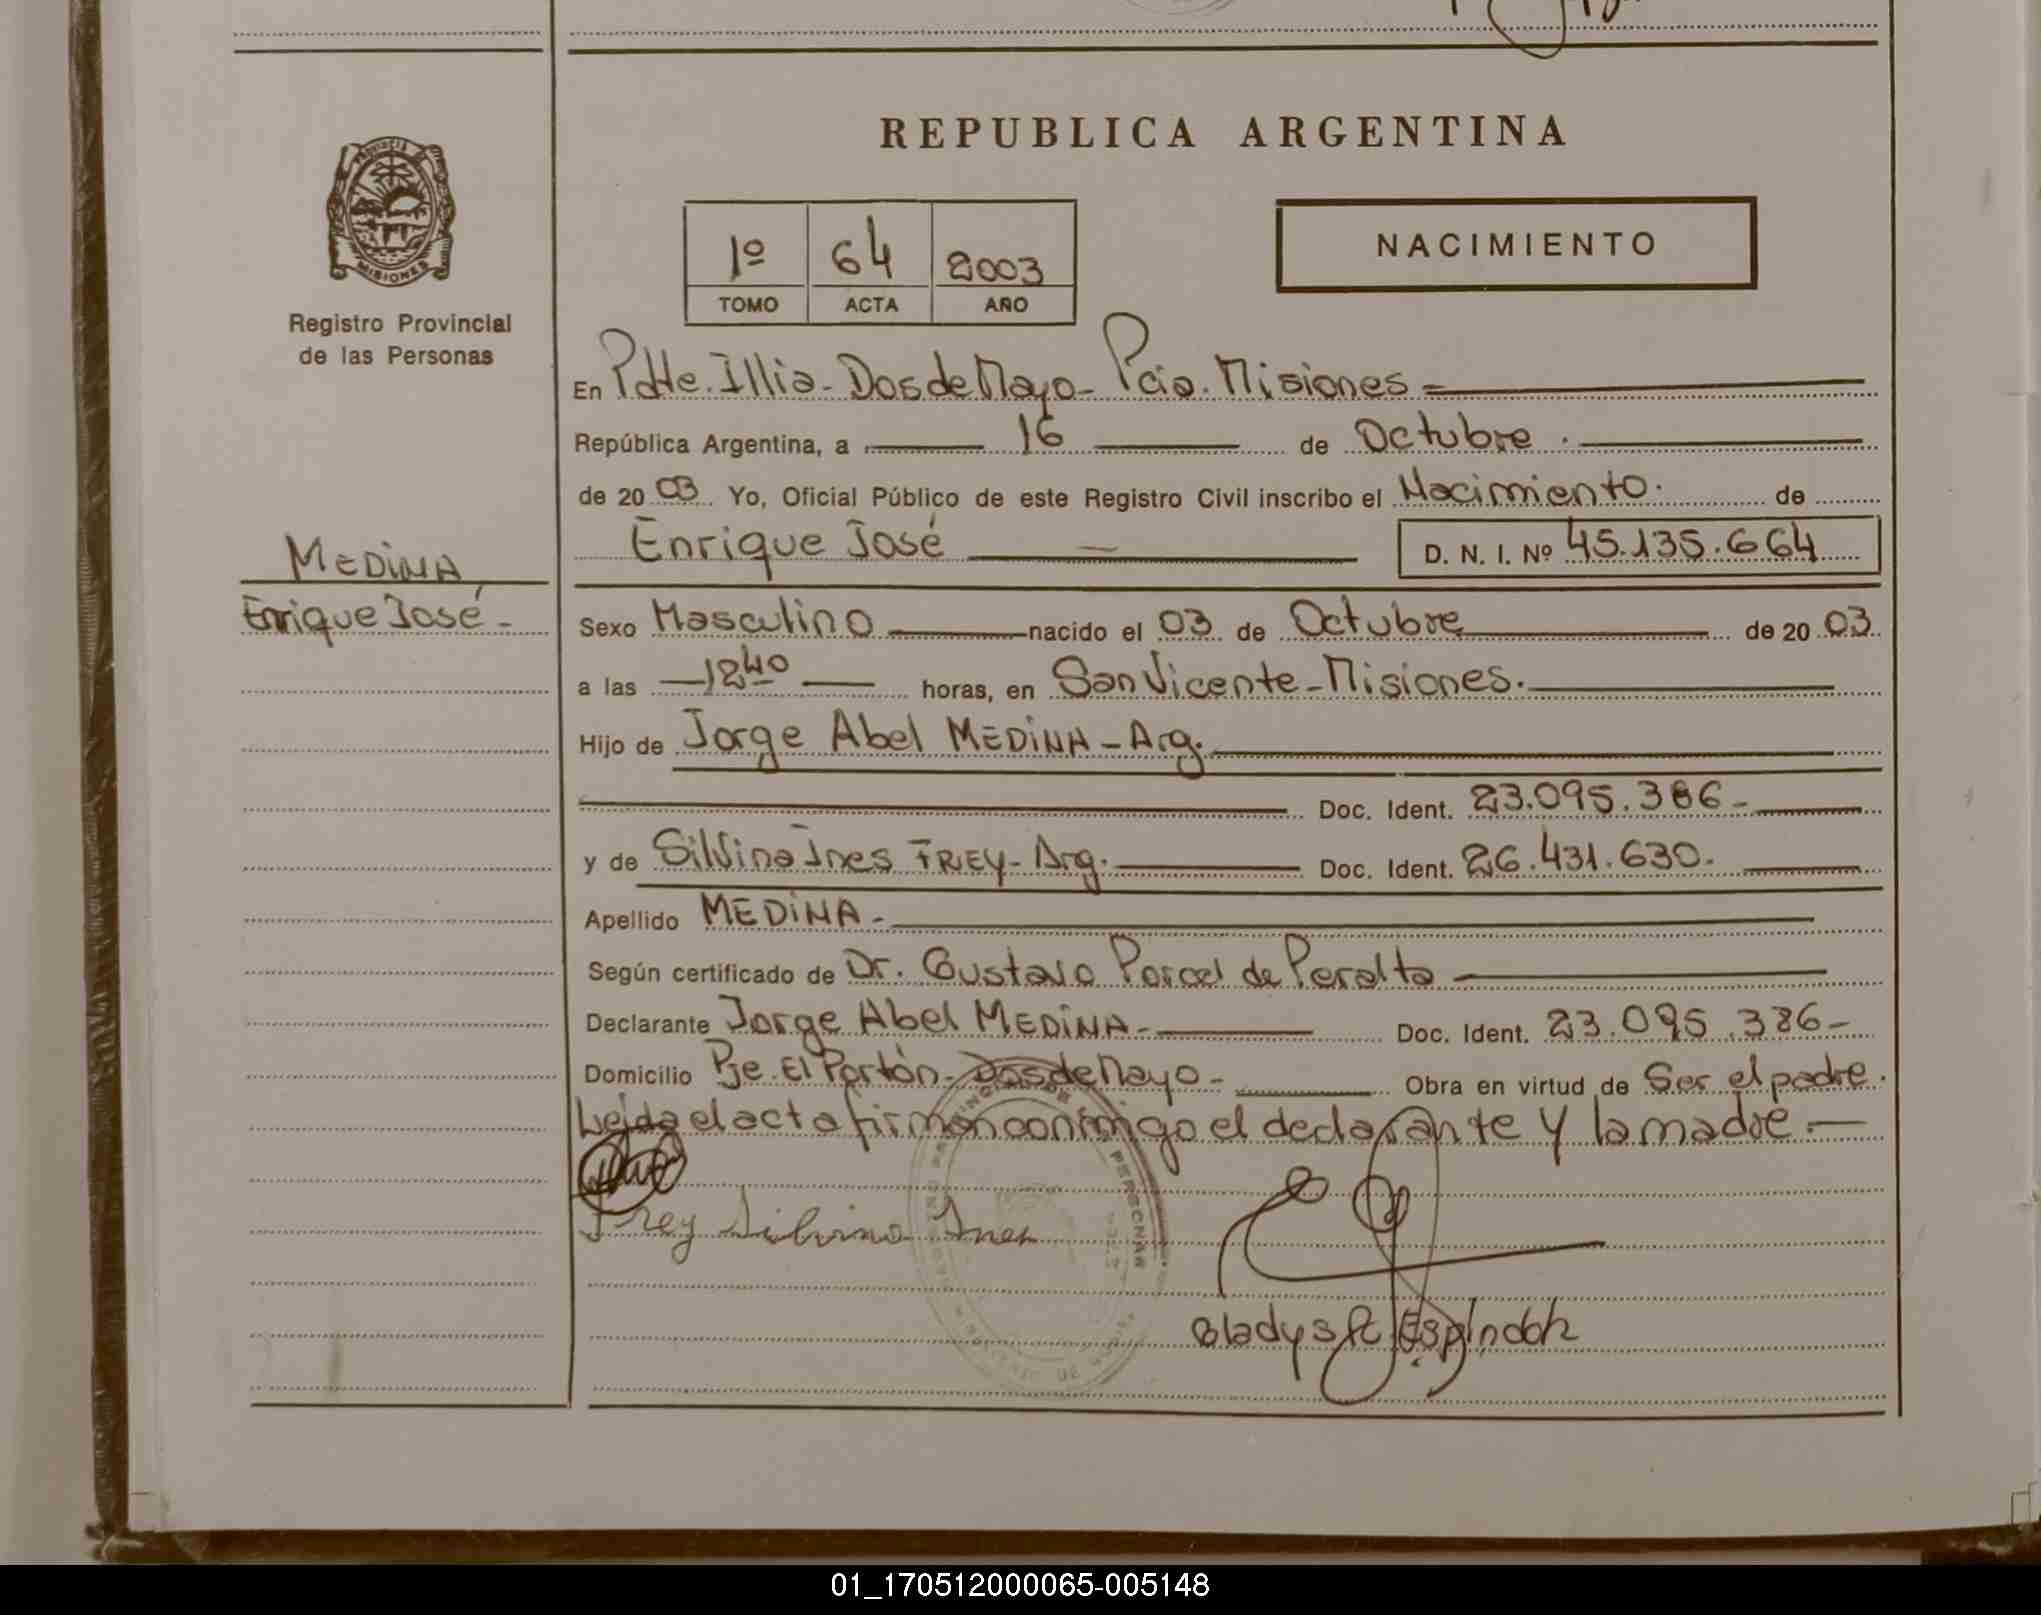 REPUBLICA ARGENTINA
PROVINCIA
MISIONES
Registro Provincial
de las Personas
1º 64 2003
TOMO ACTA AÑO
NACIMIENTO
En Pdte. Illia - Dos de Mayo - Pcia. Misiones =
República Argentina, a 16 de Octubre.
de 2003 Yo, Oficial Público de este Registro Civil inscribo el Nacimiento. de
Enrique José D. N. I. Nº 45.135.664
MEDINA
Enrique José -
Sexo Masculino nacido el 03 de Octubre de 2003
a las 12 40 horas, en San Vicente - Misiones.
Hijo de Jorge Abel MEDINA - Arg.
Doc. Ident. 23.095.386 -
y de Silvina Ines FREY - Arg. Doc. Ident. 26.431.630.
Apellido MEDINA -
Según certificado de Dr. Gustavo Porcel de Peralta
Declarante Jorge Abel MEDINA - Doc. Ident. 23.095.386 -
Domicilio Pje. El Portón - Dos de Mayo - Obra en virtud de Ser el padre.
Leída el acta firman conmigo el declarante y la madre. -
Frey Silvina Ines
Gladys Espíndola
01_170512000065-005148